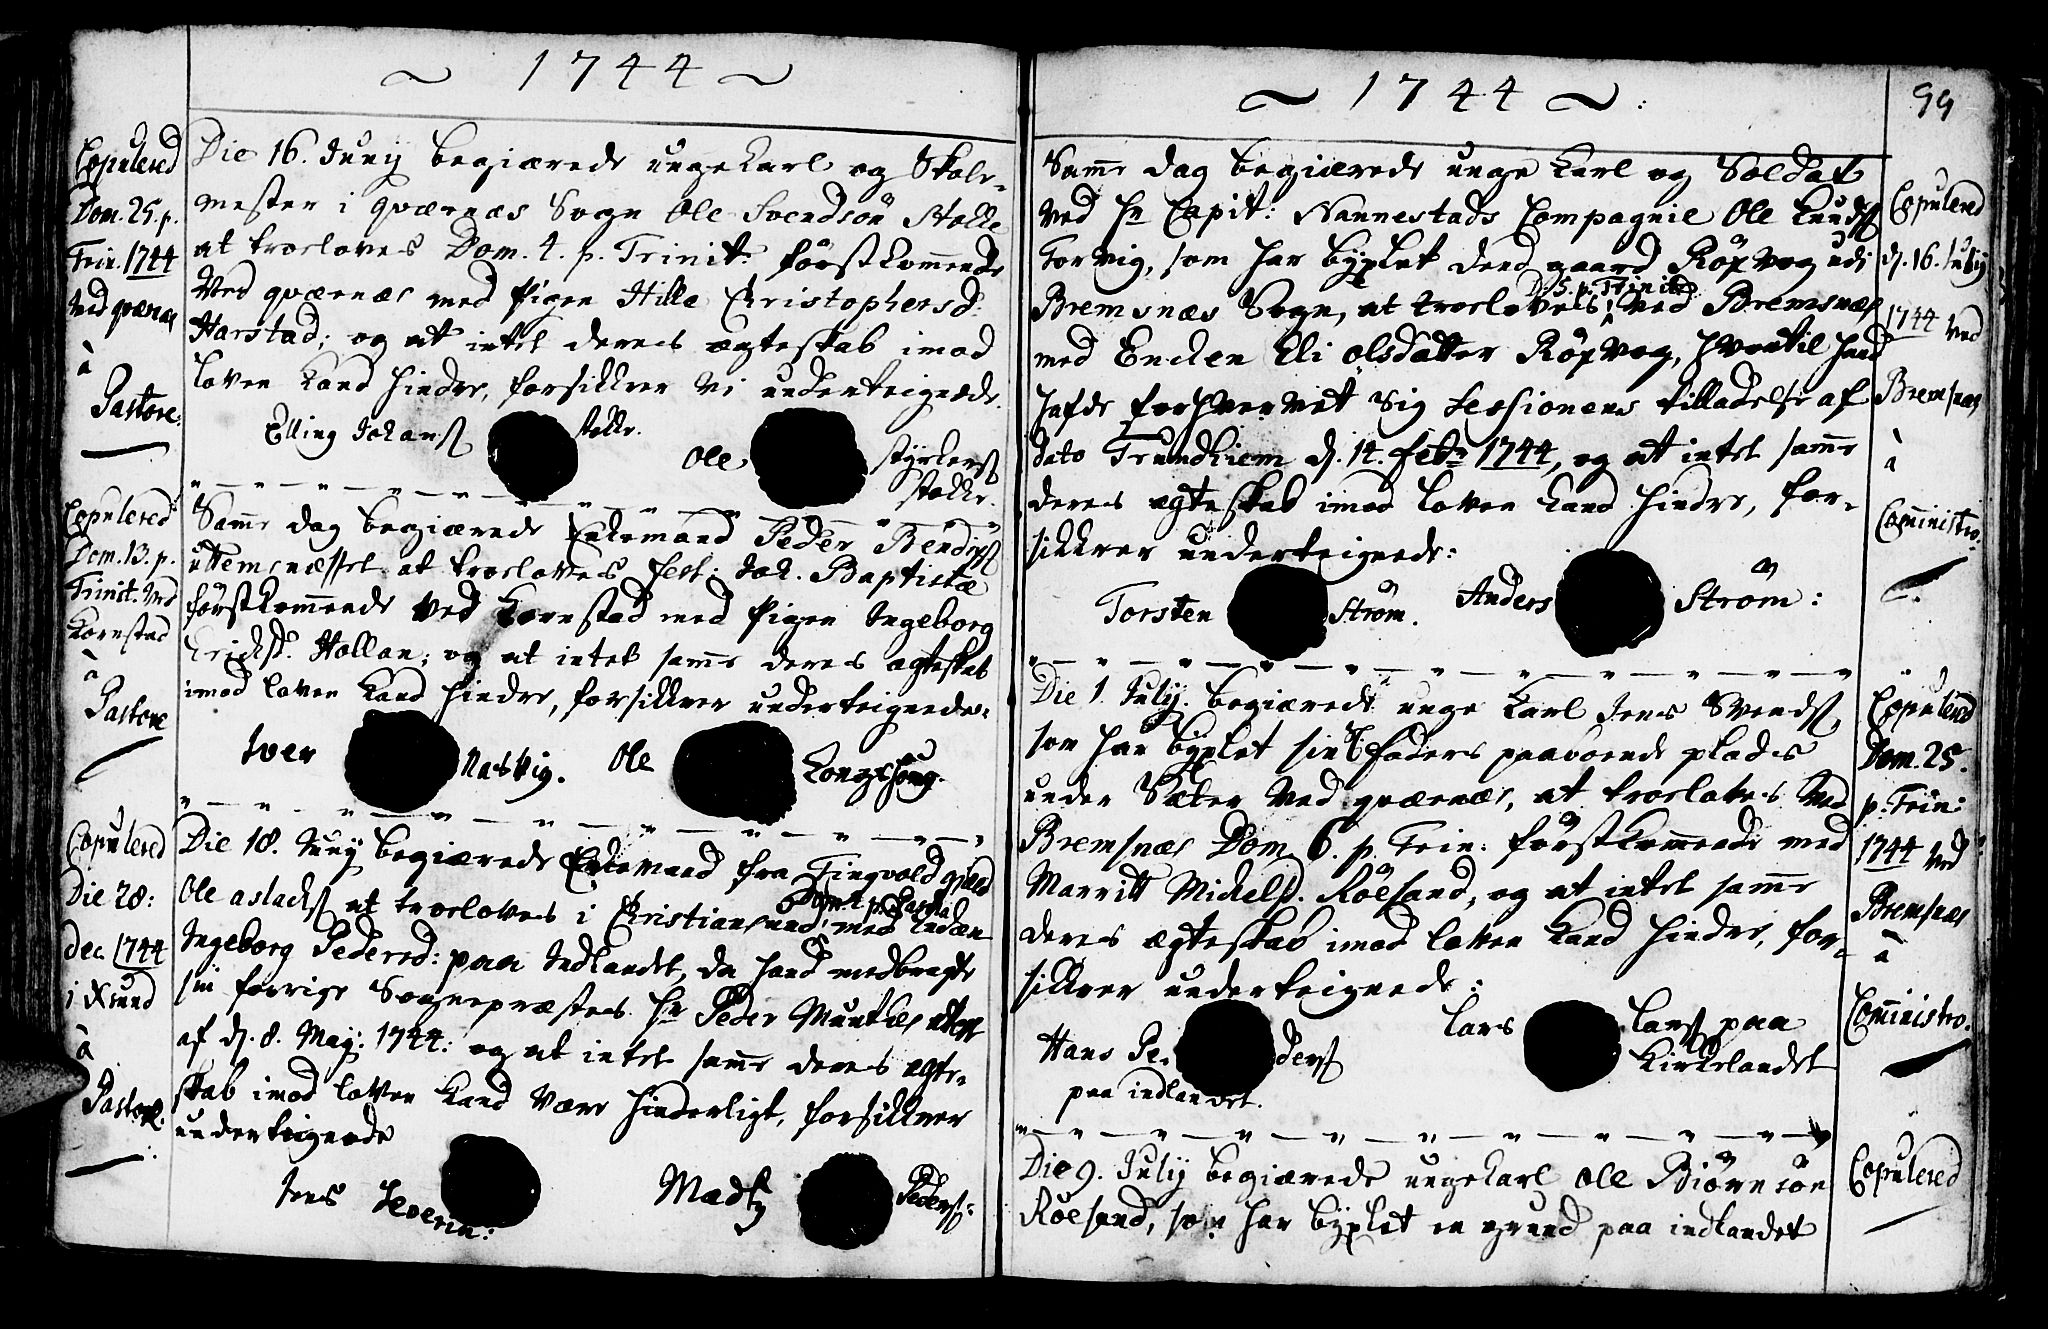 ~ 1744 ~
Copulered
Dom. 25. p.
Trin. 1744
Ved qværnæs
à
Pastore.
Die 16. Junij begiærede unge Karl og Skole-
mester i qværnæs Sogn Ole Svendsön Stolle
at troeloves Dom. 4. p. Trinit. förstkommende
Ved qværnæs med Pigen Hilla Christophersd:
Harstad; og at intet deres ægteskab imod
Loven Kand hindre, forsikkrer Vi underteignede.
Elling Johanß
Ole
Copulered
Dom. 13. p.
Trinit. Ved
Kornstad
à
Pastore
Samme dag begiærede Enkemand Peder Bendixß
at troeloves fest: Joh. Baptistæ
förstkommende Ved Kornstad med Pigen Ingeborg
Ericksd. Hollan; og at intet samme deres ægteskab
imod Loven Kand hindre, forsikkrer underteignede:
Iver Naswig. Ole Kongshoug.
Copulered
Die 28:
Dec. 1744
i Xsund
à
Pastore.
Die 18. Junij begiærede Enkemand fra Tingvold gield
Ole aslachß at troeloves i Christiansund, med Enken
Ingeborg Pedersd: paa Indlandet, da hand medbragte
sin forrige Sognepræstes Hr Peder Munthes
af d. 8. Maij: 1744: og at intet samme deres ægte-
skab imod Loven Kand være hinderligt, forsikkrer
underteignede
Jens Severin:
Madtz Pedersß:
~ 1744 ~:
99
Samme dag begiærede unge Karl og Soldat
Ved Hr Capit: Nannestads Compagnie Ole Knudß
Torvig, som har byxlet dend gaard Röxvog udi
D. 5. p. Trinit.
Bremsnæs Sogn, at troeloves, Ved Bremsnæs
med Encken Eli olsdatter Röxvog, hvortil hand
hafde forhvervet Sig Sessionens tilladelse af
dato Trundhiem d. 14. Febr 1744, og at intet samme
deres ægteskab imod Loven Kand hindre, for-
sikkrer underteignede:
Torsten Ström. Anders Ström:
Copulered
d. 16. Julij
1744 Ved
Bremsnæs
à
Comministro.
Die 1. Julij. begiærede unge Karl Jens Svendß,
som har byxlet sin faders paaboende plads
under Sæter Ved qværnæs, at troeloves Ved
Bremsnæs Dom. 6. p. Trin: förstkommende med
Marritt Mickelsd. Röesand, og at intet samme
deres ægteskab imod Loven Kand hindre, for-
sikkrer underteignede:
Hans Pe. dersß
paa indlandet.
Lars Larsß paa
Kirkelandet
Copulered
Dom. 25.
p. Trin:
1744 Ved
Bremsnæs
à
Comministro.
Die 9. Julij begiærede unge Karl Ole Biörnsön
Röesand, som har byxlet en grund paa indlandet
Copulered